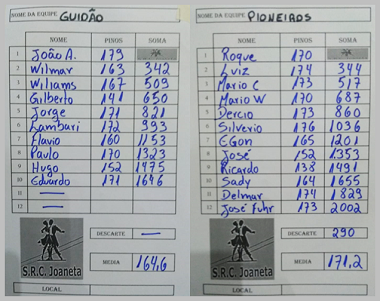 NOME DA EQUIPE GUIDÃO
NOME PINOS SOMA
1 João A. 179
2 Wilmar 163 342
3 Williams 167 509
4 Gilberto 141 650
5 Jorge 171 821
6 Lambari 172 993
7 Flavio 160 1153
8 Paulo 170 1323
9 Hugo 152 1475
10 Eduardo 171 1646
11 —
12 —
DESCARTE —
S.R.C. Joaneta
MÉDIA 164,6
LOCAL
NOME DA EQUIPE PIONEIROS
NOME PINOS SOMA
1 Roque 170
2 Luiz 174 344
3 Mario C 173 517
4 Mario W 170 687
5 Dercio 173 860
6 Silverio 176 1036
7 EGon 165 1201
8 José 152 1353
9 Ricardo 138 1491
10 Sady 164 1655
11 Delmar 174 1829
12 José Fuhr 173 2002
DESCARTE 290
S.R.C. Joaneta
MÉDIA 171,2
LOCAL